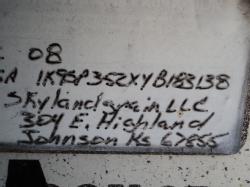 08
1K9SP352XYB183138
Skyland grain LLC
304 E. Highland
Johnson Ks 67855